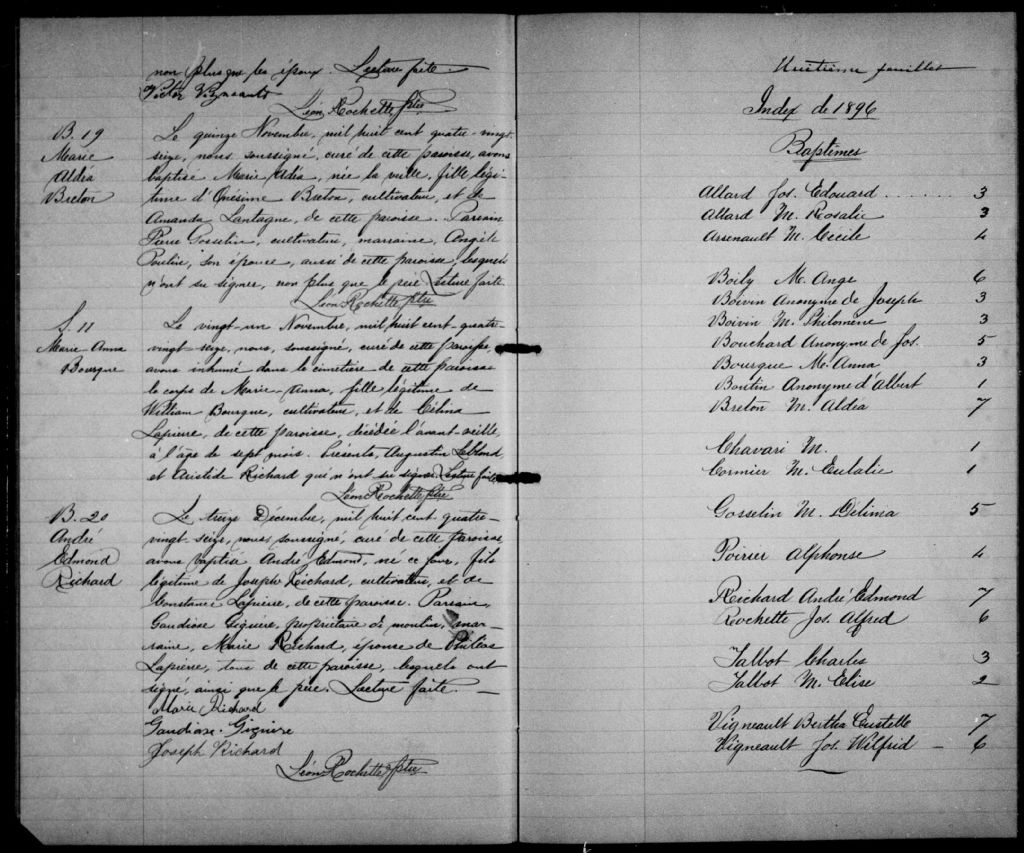 non plus que les époux. Lecture faite.
Victor Vigneault
Léon Rochette ptre
B. 19
Marie
Aldéa
Breton
Le quinze Novembre, mil huit cent quatre-vingt-
seize, nous soussigné, curé de cette paroisse, avons
baptisé Marie Aldéa, née la veille, fille légi-
time d'Onésime Breton, cultivateur, et de
Amanda Lantagne, de cette paroisse. Parrain
Pierre Gosselin, cultivateur, marraine, Angèle
Poulin, son épouse, aussi de cette paroisse, lesquels
n'ont su signer, non plus que le père. Lecture faite.
Léon Rochette ptre
S. 11
Marie-Anna
Bourque
Le vingt-un Novembre, mil huit cent-quatre-
vingt seize, nous, soussigné, curé de cette paroisse,
avons inhumé dans le cimetière de cette paroisse
le corps de Marie-Anna, fille légitime de
William Bourque, cultivateur, et de Célina
Lapierre, de cette paroisse, décédée l'avant-veille,
à l'âge de sept mois. Présents, Augustin Leblond
et Aristide Richard qui n'ont su signer. Lecture faite
Léon Rochette ptre
B. 20
André
Edmond
Richard
Le treize Décembre, mil huit cent quatre-
vingt seize, nous soussigné, curé de cette paroisse
avons baptisé André Edmond, né ce jour, fils
légitime de Joseph Richard, cultivateur, et de
Constance Lapierre, de cette paroisse. Parrain,
Gaudiose Giguère, propriétaire de moulin, mar-
raine, Marie Richard, épouse de Philéas
Lapierre, tous de cette paroisse, lesquels ont
signé, ainsi que le père. Lecture faite. —
Marie Richard
Gaudiose Giguère
Joseph Richard
Léon Rochette ptre
Huitième feuillet
Index de 1896
Baptêmes
Allard Jos. Edouard . . . . . . . 3
Allard M. Rosalie 3
Arsenault M. Cécile 4
Boily M. Ange 6
Boivin Anonyme de Joseph 3
Boivin M. Philomène 3
Bouchard Anonyme de Jos. 5
Bourque M. Anna 3
Boutin Anonyme d'Albert 1
Breton M. Aldéa 7
Chavari M. 1
Cormier M. Eulalie 1
Gosselin M. Délima 5
Poirier Alphonse 4
Richard André Edmond 7
Rochette Jos. Alfred 6
Talbot Charles 3
Talbot M. Elise 2
Vigneault Bertha Eustelle 7
Vigneault Jos. Wilfrid — 6